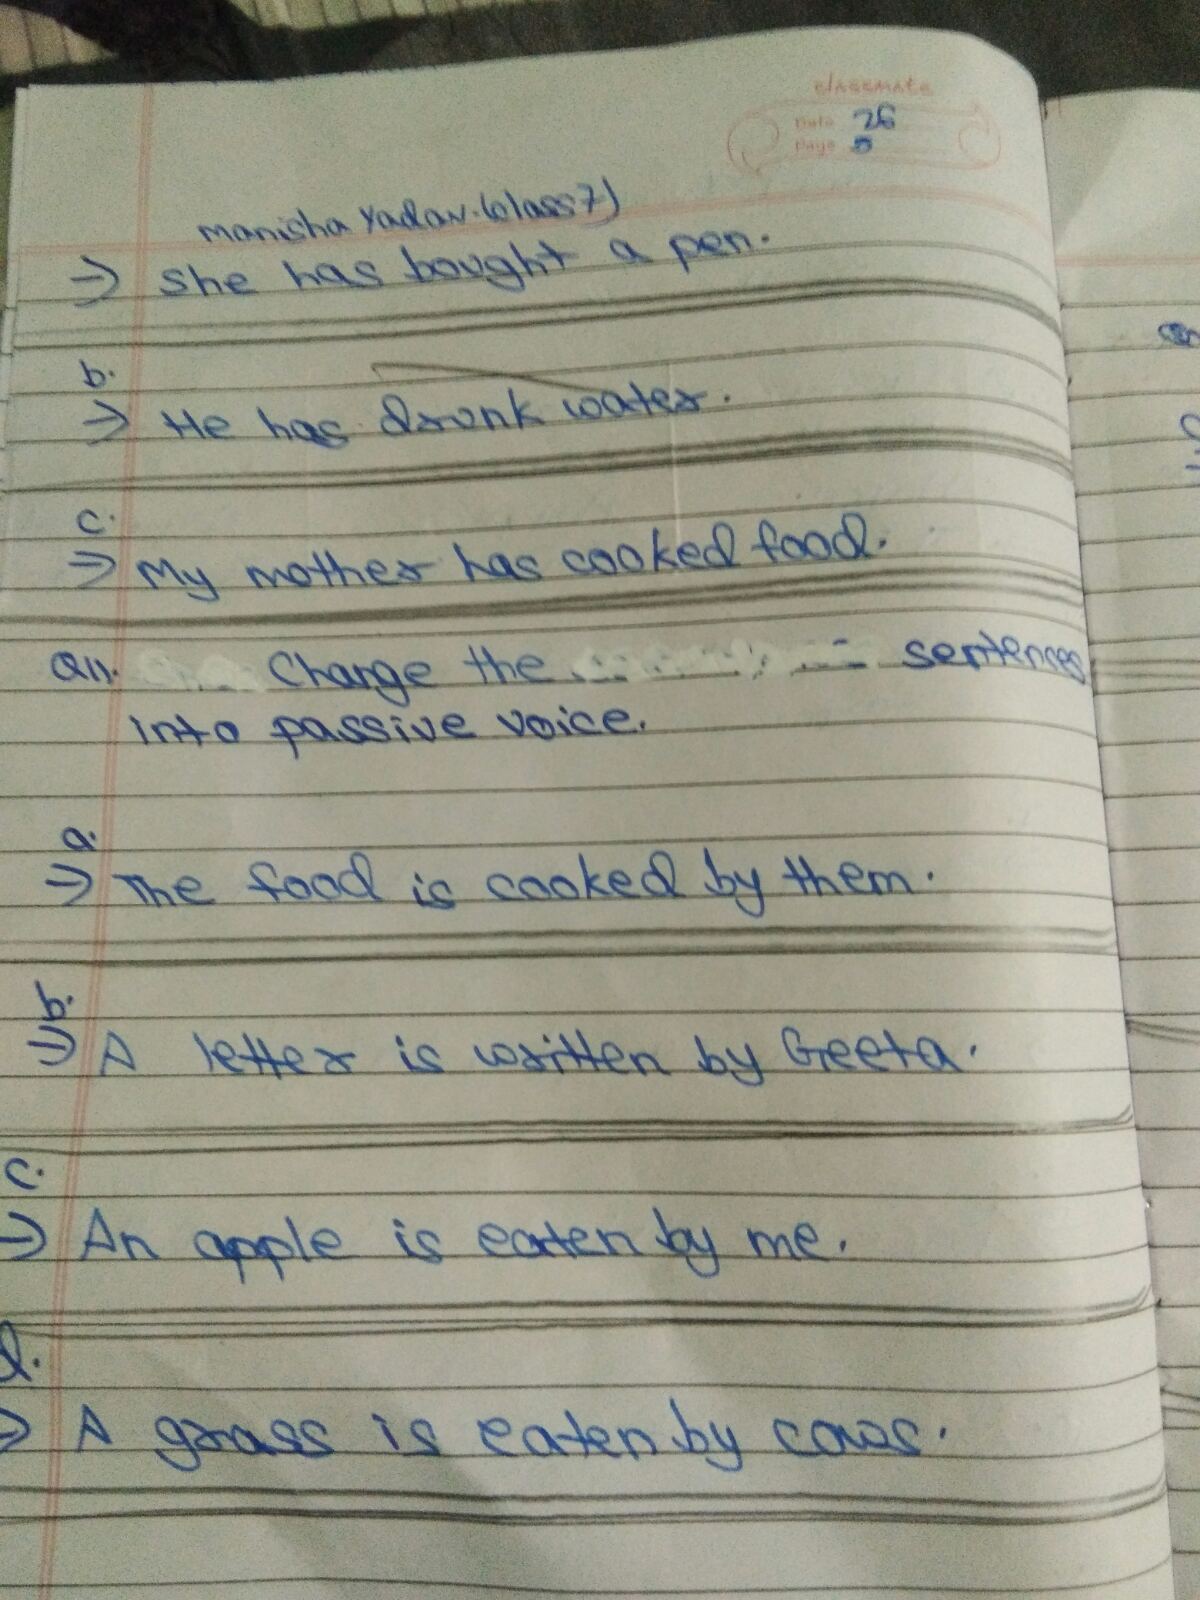 classmate
Date 26
Page
Manisha Yadav. (class 7)
⇒ She has bought a pen.
b.
⇒ He has drunk water.
c.
⇒ My mother has cooked food.
Q11. Change the sentences
into passive voice.
a.
⇒ The food is cooked by them.
b.
⇒ A letter is written by Geeta.
c.
⇒ An apple is eaten by me.
d.
⇒ A grass is eaten by cows.